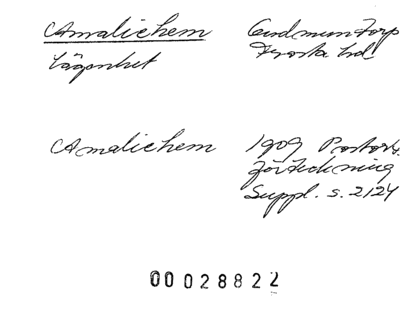 Amaliehem Gudmuntorp
lägenhet Frosta hd
Amaliehem 1909 Postort.
förteckning
Suppl. s. 2124
00028822